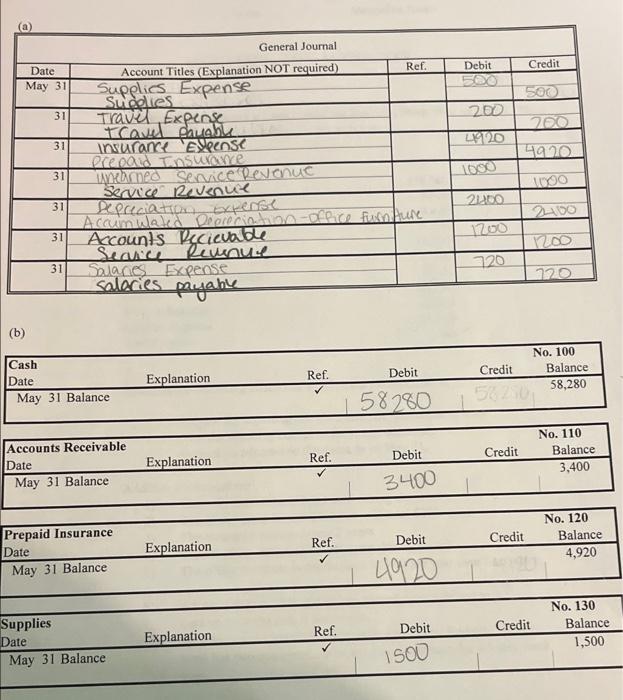 (a)
General Journal
Date Account Titles (Explanation NOT required) Ref. Debit Credit
May 31 Supplies Expense 500
Supplies 500
31 Travel Expense 200
Travel Payable 200
31 Insurance Expense 4920
Prepaid Insurance 4920
31 Unearned Service Revenue 1000
Service Revenue 1000
31 Depreciation Expense 2400
Accumulated Depreciation-office furniture 2400
31 Accounts Recievable 1200
Service Revenue 1200
31 Salaries Expense 720
salaries payable 720
(b)
Cash No. 100
Date Explanation Ref. Debit Credit Balance
May 31 Balance ✓ 58280 58280 58,280
Accounts Receivable No. 110
Date Explanation Ref. Debit Credit Balance
May 31 Balance ✓ 3400 3,400
Prepaid Insurance No. 120
Date Explanation Ref. Debit Credit Balance
May 31 Balance ✓ 4920 4,920
Supplies No. 130
Date Explanation Ref. Debit Credit Balance
May 31 Balance ✓ 1500 1,500